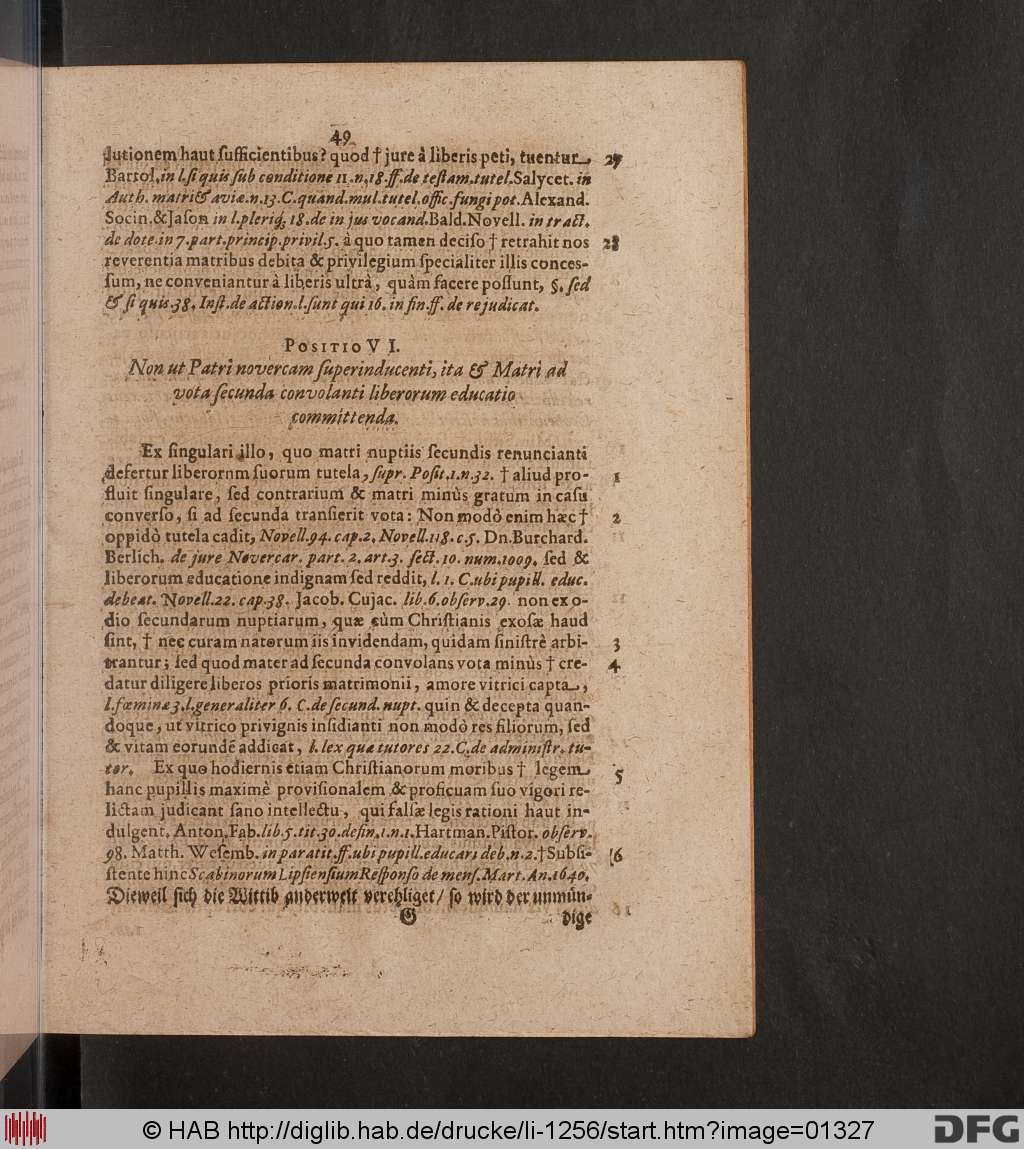 49
lutionem haut ſufficientibus? quod † jure à liberis peti, tuentur 27
Bartol. in l. ſi quis ſub conditione 11. n. 18. ff. de teſtam. tutel. Salycet. in
Auth. matri & aviæ. n. 13. C. quand. mul. tutel. offic. fungi pot. Alexand.
Socin. & Jaſon in l. pleriq́; 18. de in jus vocand. Bald. Novell. in tract.
de dote in 7. part. princip. privil. 5. à quo tamen deciſo † retrahit nos 28
reverentia matribus debita & privilegium ſpecialiter illis conceſ-
ſum, ne conveniantur à liberis ultrà, quàm facere poſſunt, §. ſed
& ſi quis. 38. Inſt. de action. l. ſunt qui 16. in fin. ff. de re judicat.
POSITIO VI.
Non ut Patri novercam ſuperinducenti, ita & Matri ad
vota ſecunda convolanti liberorum educatio
committenda.
Ex ſingulari illo, quo matri nuptiis ſecundis renuncianti
defertur liberornm ſuorum tutela, ſupr. Poſit. 1. n. 32. † aliud pro- 1
fluit ſingulare, ſed contrarium & matri minùs gratum in caſu
converſo, ſi ad ſecunda tranſierit vota: Non modò enim hæc † 2
oppidò tutela cadit, Novell. 94. cap. 2. Novell. 118. c. 5. Dn. Burchard.
Berlich. de jure Novercar. part. 2. art. 3. ſect. 10. num. 1009. ſed &
liberorum educatione indignam ſed reddit, l. 1. C. ubi pupill. educ.
debeat. Novell. 22. cap. 38. Jacob. Cujac. lib. 6. obſerv. 29. non ex o-
dio ſecundarum nuptiarum, quæ cùm Chriſtianis exoſæ haud
ſint, † nec curam natorum iis invidendam, quidam ſiniſtrè arbi- 3
trantur; ſed quod mater ad ſecunda convolans vota minùs † cre- 4
datur diligere liberos prioris matrimonii, amore vitrici capta,
l. fœminæ 3. l. generaliter 6. C. de ſecund. nupt. quin & decepta quan-
doque, ut vitrico privignis inſidianti non modò res filiorum, ſed
& vitam eorundē addicat, l. lex quæ tutores 22. C. de adminiſtr. tu-
tor. Ex quo hodiernis etiam Chriſtianorum moribus † legem 5
hanc pupillis maximè proviſionalem & proficuam ſuo vigori re-
lictam judicant ſano intellectu, qui falſæ legis rationi haut in-
dulgent, Anton. Fab. lib. 5. tit. 30. defin. 1. n. 1. Hartman. Piſtor. obſerv.
98. Matth. Weſemb. in paratit. ff. ubi pupill. educari deb. n. 2. † Subſi- 6
ſtente hinc Scabinorum Lipſienſium Reſponſo de menſ. Mart. An. 1640.
Dieweil ſich die Wittib anderweit verehliget / ſo wird der unmün-
G dige
© HAB http://diglib.hab.de/drucke/li-1256/start.htm?image=01327
DFG